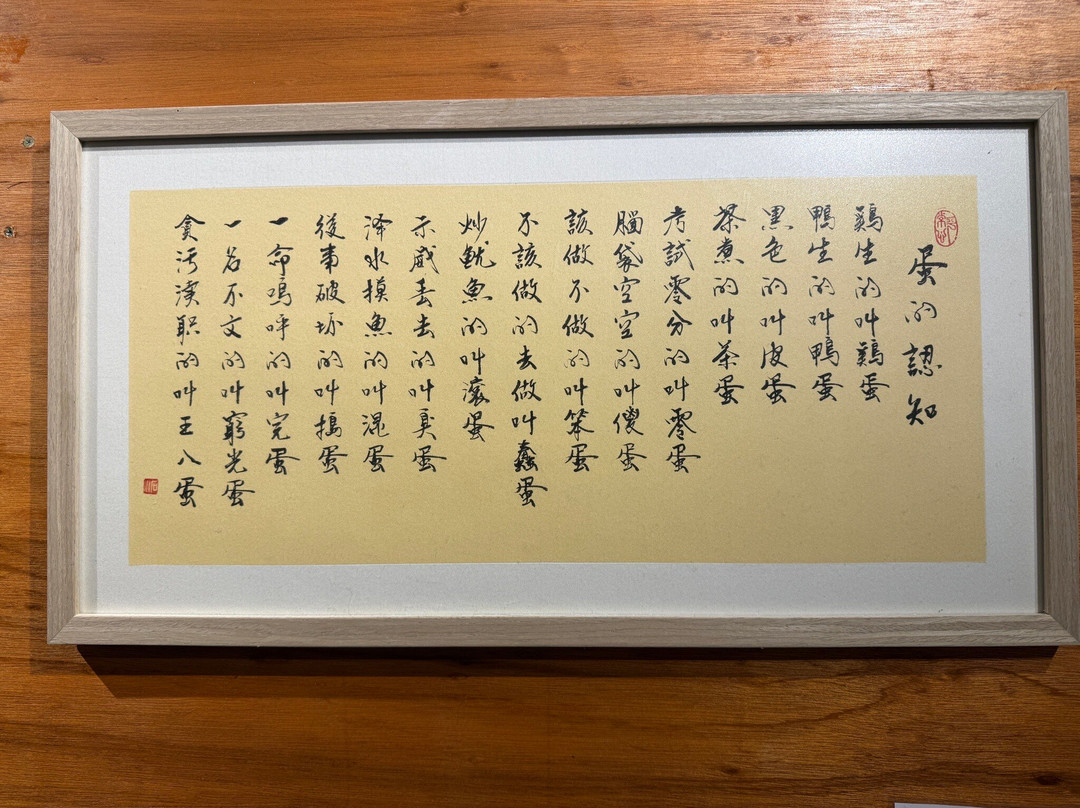 蛋的認知
鷄生的叫鷄蛋
鴨生的叫鴨蛋
黑色的叫皮蛋
茶煮的叫茶蛋
考試零分的叫零蛋
腦袋空空的叫傻蛋
該做不做的叫笨蛋
不該做的去做叫蠢蛋
炒魷魚的叫滾蛋
示威丢去的叫臭蛋
浑水摸魚的叫混蛋
從事破坏的叫搗蛋
一命嗚呼的叫完蛋
一名不文的叫窮光蛋
貪污瀆職的叫王八蛋